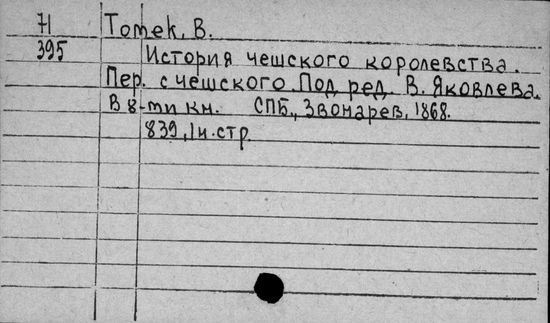 71 Томек, В.
395 История чешского королевства.
Пер. с чешского. Под ред. В. Яковлева.
В 8-ти кн. СПБ., Звонарев, 1868.
839, 1 н. стр.